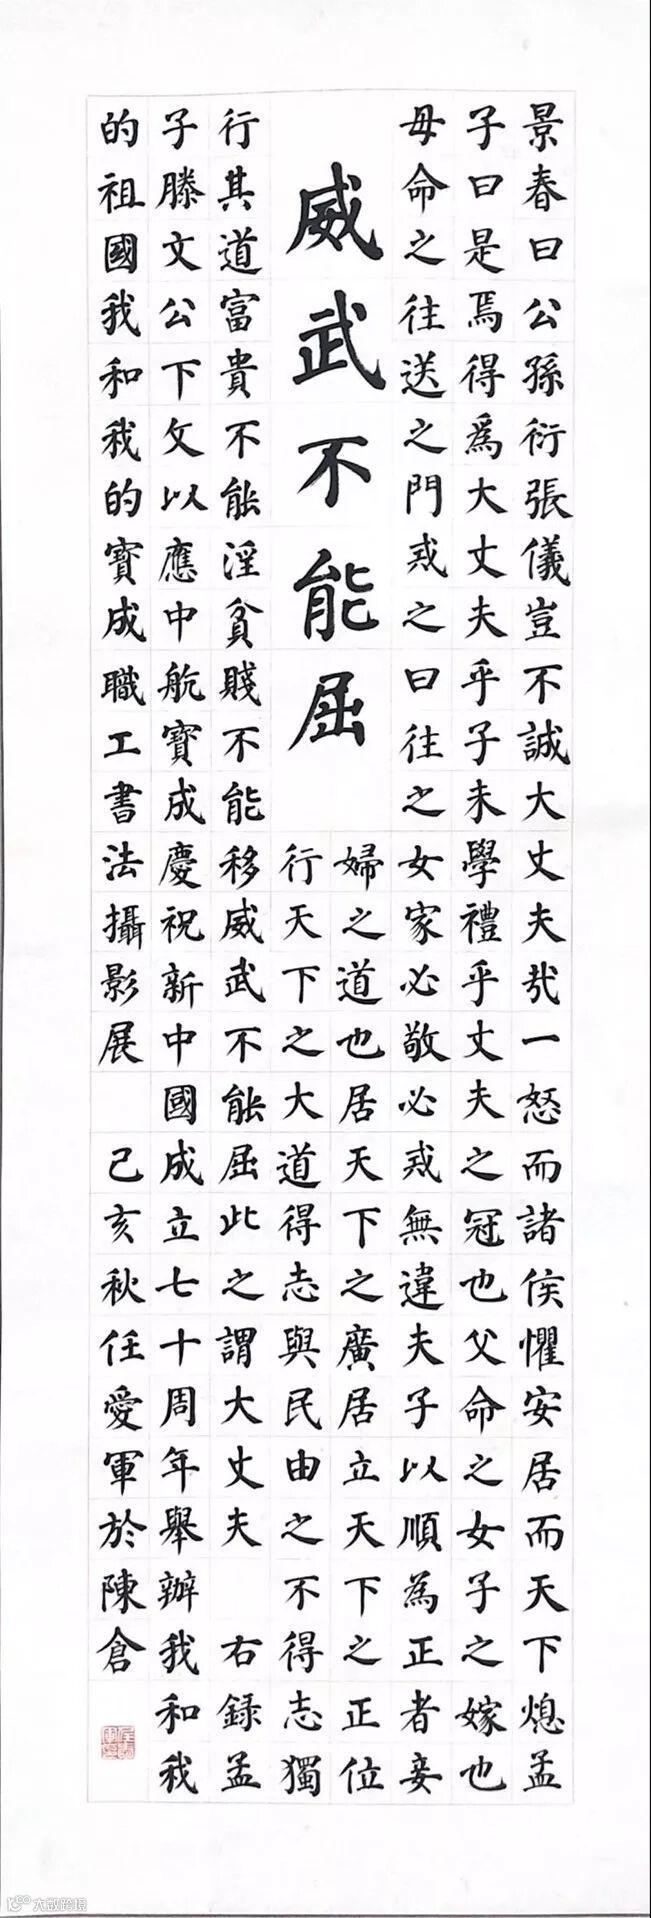 景春曰公孫衍張儀豈不誠大丈夫哉一怒而諸侯懼安居而天下熄孟
子曰是焉得爲大丈夫乎子未學禮乎丈夫之冠也父命之女子之嫁也
母命之往送之門戒之曰往之女家必敬必戒無違夫子以順為正者妾
威武不能屈
婦之道也居天下之廣居立天下之正位
行天下之大道得志與民由之不得志獨
行其道富貴不能淫貧賤不能移威武不能屈此之謂大丈夫 右錄孟
子滕文公下文以應中航寶成慶祝新中國成立七十周年舉辦我和我
的祖國我和我的寶成職工書法攝影展 己亥秋任愛軍於陳倉
大数跨境